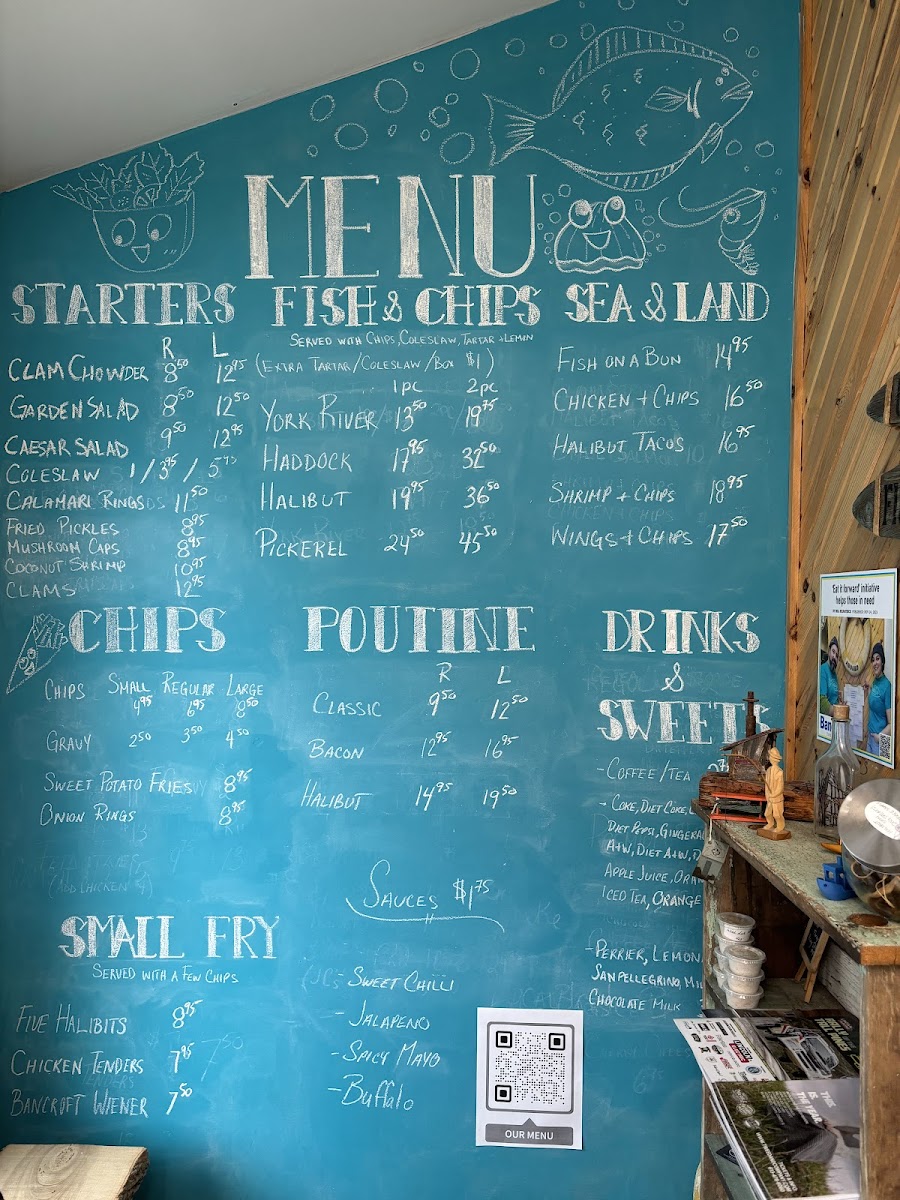 MENU
STARTERS
R L
CLAM CHOWDER 8⁵⁰ 12⁹⁵
GARDEN SALAD 8⁵⁰ 12⁵⁰
CAESAR SALAD 9⁵⁰ 12⁹⁵
COLESLAW 1/3⁹⁵/5
CALAMARI RINGS 11⁵⁰
FRIED PICKLES 8⁹⁵
MUSHROOM CAPS 8⁹⁵
COCONUT SHRIMP 10⁹⁵
CLAMS 12⁹⁵
FISH & CHIPS
SERVED WITH CHIPS, COLESLAW, TARTAR + LEMIN
(EXTRA TARTAR/COLESLAW/BOX $1)
1pc 2pc
YORK RIVER 13⁵⁰ 19⁷⁵
HADDOCK 17⁹⁵ 32⁵⁰
HALIBUT 19⁹⁵ 36⁵⁰
PICKEREL 24⁵⁰ 45⁵⁰
SEA & LAND
FISH ON A BUN 14⁹⁵
CHICKEN + CHIPS 16⁵⁰
HALIBUT TACOS 16⁹⁵
SHRIMP + CHIPS 18⁹⁵
WINGS + CHIPS 17⁵⁰
CHIPS
CHIPS SMALL REGULAR LARGE
4⁹⁵ 6⁹⁵ 8⁵⁰
GRAVY 2⁵⁰ 3⁵⁰ 4⁵⁰
SWEET POTATO FRIES 8⁹⁵
ONION RINGS 8⁹⁵
POUTINE
R L
CLASSIC 9⁵⁰ 12⁵⁰
BACON 12⁹⁵ 16⁹⁵
HALIBUT 14⁹⁵ 19⁵⁰
DRINKS
&
SWEETS
- COFFEE/TEA
- COKE, DIET COKE,
DIET PEPSI, GINGERAL
A+W, DIET A+W,
APPLE JUICE, ORAN
ICED TEA, ORANGE
- PERRIER, LEMON
SANPELLEGRINO, MIL
CHOCOLATE MILK
SAUCES $1⁷⁵
- SWEET CHILLI
- JALAPENO
- SPICY MAYO
- BUFFALO
SMALL FRY
SERVED WITH A FEW CHIPS
FIVE HALIBITS 8⁹⁵
CHICKEN TENDERS 7⁹⁵
BANCROFT WIENER 7⁵⁰
OUR MENU
'Eat it forward' initiative
helps those in need
Ban